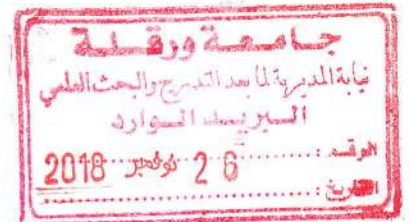 جامعة ورقلة
نيابة المديرية لما بعد التدرج والبحث العلمي
البريد الوارد
الرقم :
26 نوفمبر 2018
التاريخ :